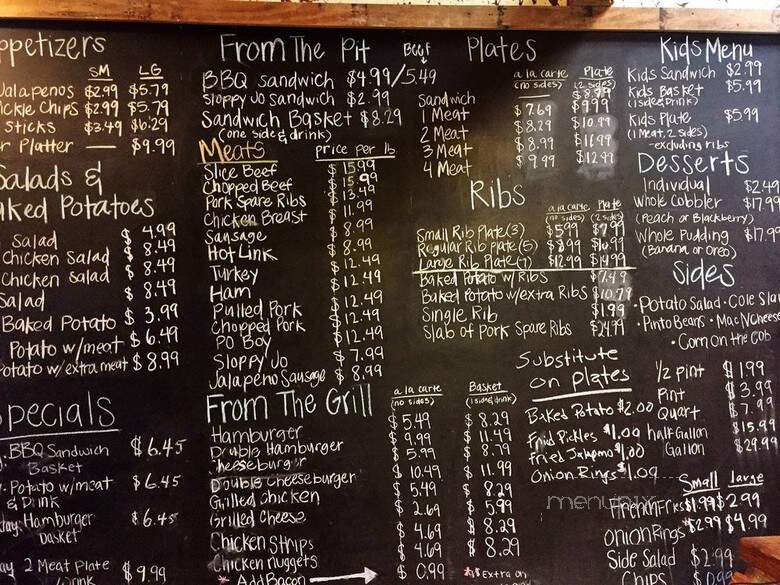 ppetizers
SM LG
Jalapenos $2.99 $5.79
ickle Chips $2.99 $5.79
Sticks $3.49 $6.29
r Platter — $9.99
Salads &
aked Potatoes
Salad $ 4.99
Chicken Salad $ 8.49
Chicken Salad $ 8.49
Salad $ 8.49
Baked Potato $ 3.99
Potato w/meat $ 6.49
otato w/extra meat $ 8.99
pecials
BBQ Sandwich $6.45
Basket
Potato w/meat $6.45
& Drink
Hamburger $6.45
Basket
2 Meat Plate $9.99
From The Pit Beef
BBQ Sandwich $4.99/5.49
Sloppy Jo Sandwich $2.99
Sandwich Basket $8.29
(one side & drink)
Meats price per lb
Slice Beef $ 15.99
Chopped Beef $ 15.99
Pork Spare Ribs $ 13.49
Chicken Breast $ 11.99
Sausage $ 8.99
Hot Link $ 8.99
Turkey $ 12.49
Ham $ 12.49
Pulled Pork $ 12.49
Chopped Pork $ 12.49
Po Boy $ 12.49
Sloppy Jo $ 7.99
Jalapeno Sausage $ 8.99
From The Grill
a la carte Basket
(no sides) (1 side & drink)
Hamburger $ 5.49 $ 8.29
Double Hamburger $ 9.99 $ 11.49
Cheeseburger $ 5.99 $ 8.79
Double Cheeseburger $ 10.49 $ 11.99
Grilled Chicken $ 5.49 $ 8.29
Grilled Cheese $ 2.69 $ 5.99
Chicken Strips $ 4.69 $ 8.29
Chicken nuggets $ 4.69 $ 8.29
* Add Bacon $ 0.99 *$ Extra on
Plates a la carte Plate
(no sides) (2 sides)
Sandwich $8.99
1 Meat $7.69 $9.99
2 Meat $8.29 $10.99
3 Meat $8.99 $11.99
4 Meat $9.99 $12.99
Ribs a la carte Plate
(no sides) (2 sides)
Small Rib Plate(3) $5.99 $7.99
Regular Rib Plate(5) $8.99 $10.99
Large Rib Plate(7) $12.99 $14.99
Baked Potato w/Ribs $7.49
Baked Potato w/extra Ribs $10.79
Single Rib $1.99
Slab of Pork Spare Ribs $24.99
Substitute
on plates
Baked Potato $2.00
Fried Pickles $1.00
Fried Jalapeno $1.00
Onion Rings $1.00
menupix
Kids Menu
Kids Sandwich $2.99
Kids Basket $5.99
(1 side & Drink)
Kids Plate $5.99
(1 Meat, 2 sides)
-excluding ribs
Desserts
Individual $2.49
Whole Cobbler $17.99
(Peach or Blackberry)
Whole Pudding $17.99
(Banana or Oreo)
Sides
•Potato Salad • Cole Slaw
•Pinto Beans • Mac N Cheese
• Corn on the Cob
1/2 pint $ 1.99
Pint $ 3.99
Quart $ 7.99
half Gallon $15.99
Gallon $29.99
Small Large
French Fries $1.99 $2.99
Onion Rings $2.99 $4.99
Side Salad $2.99
Chips